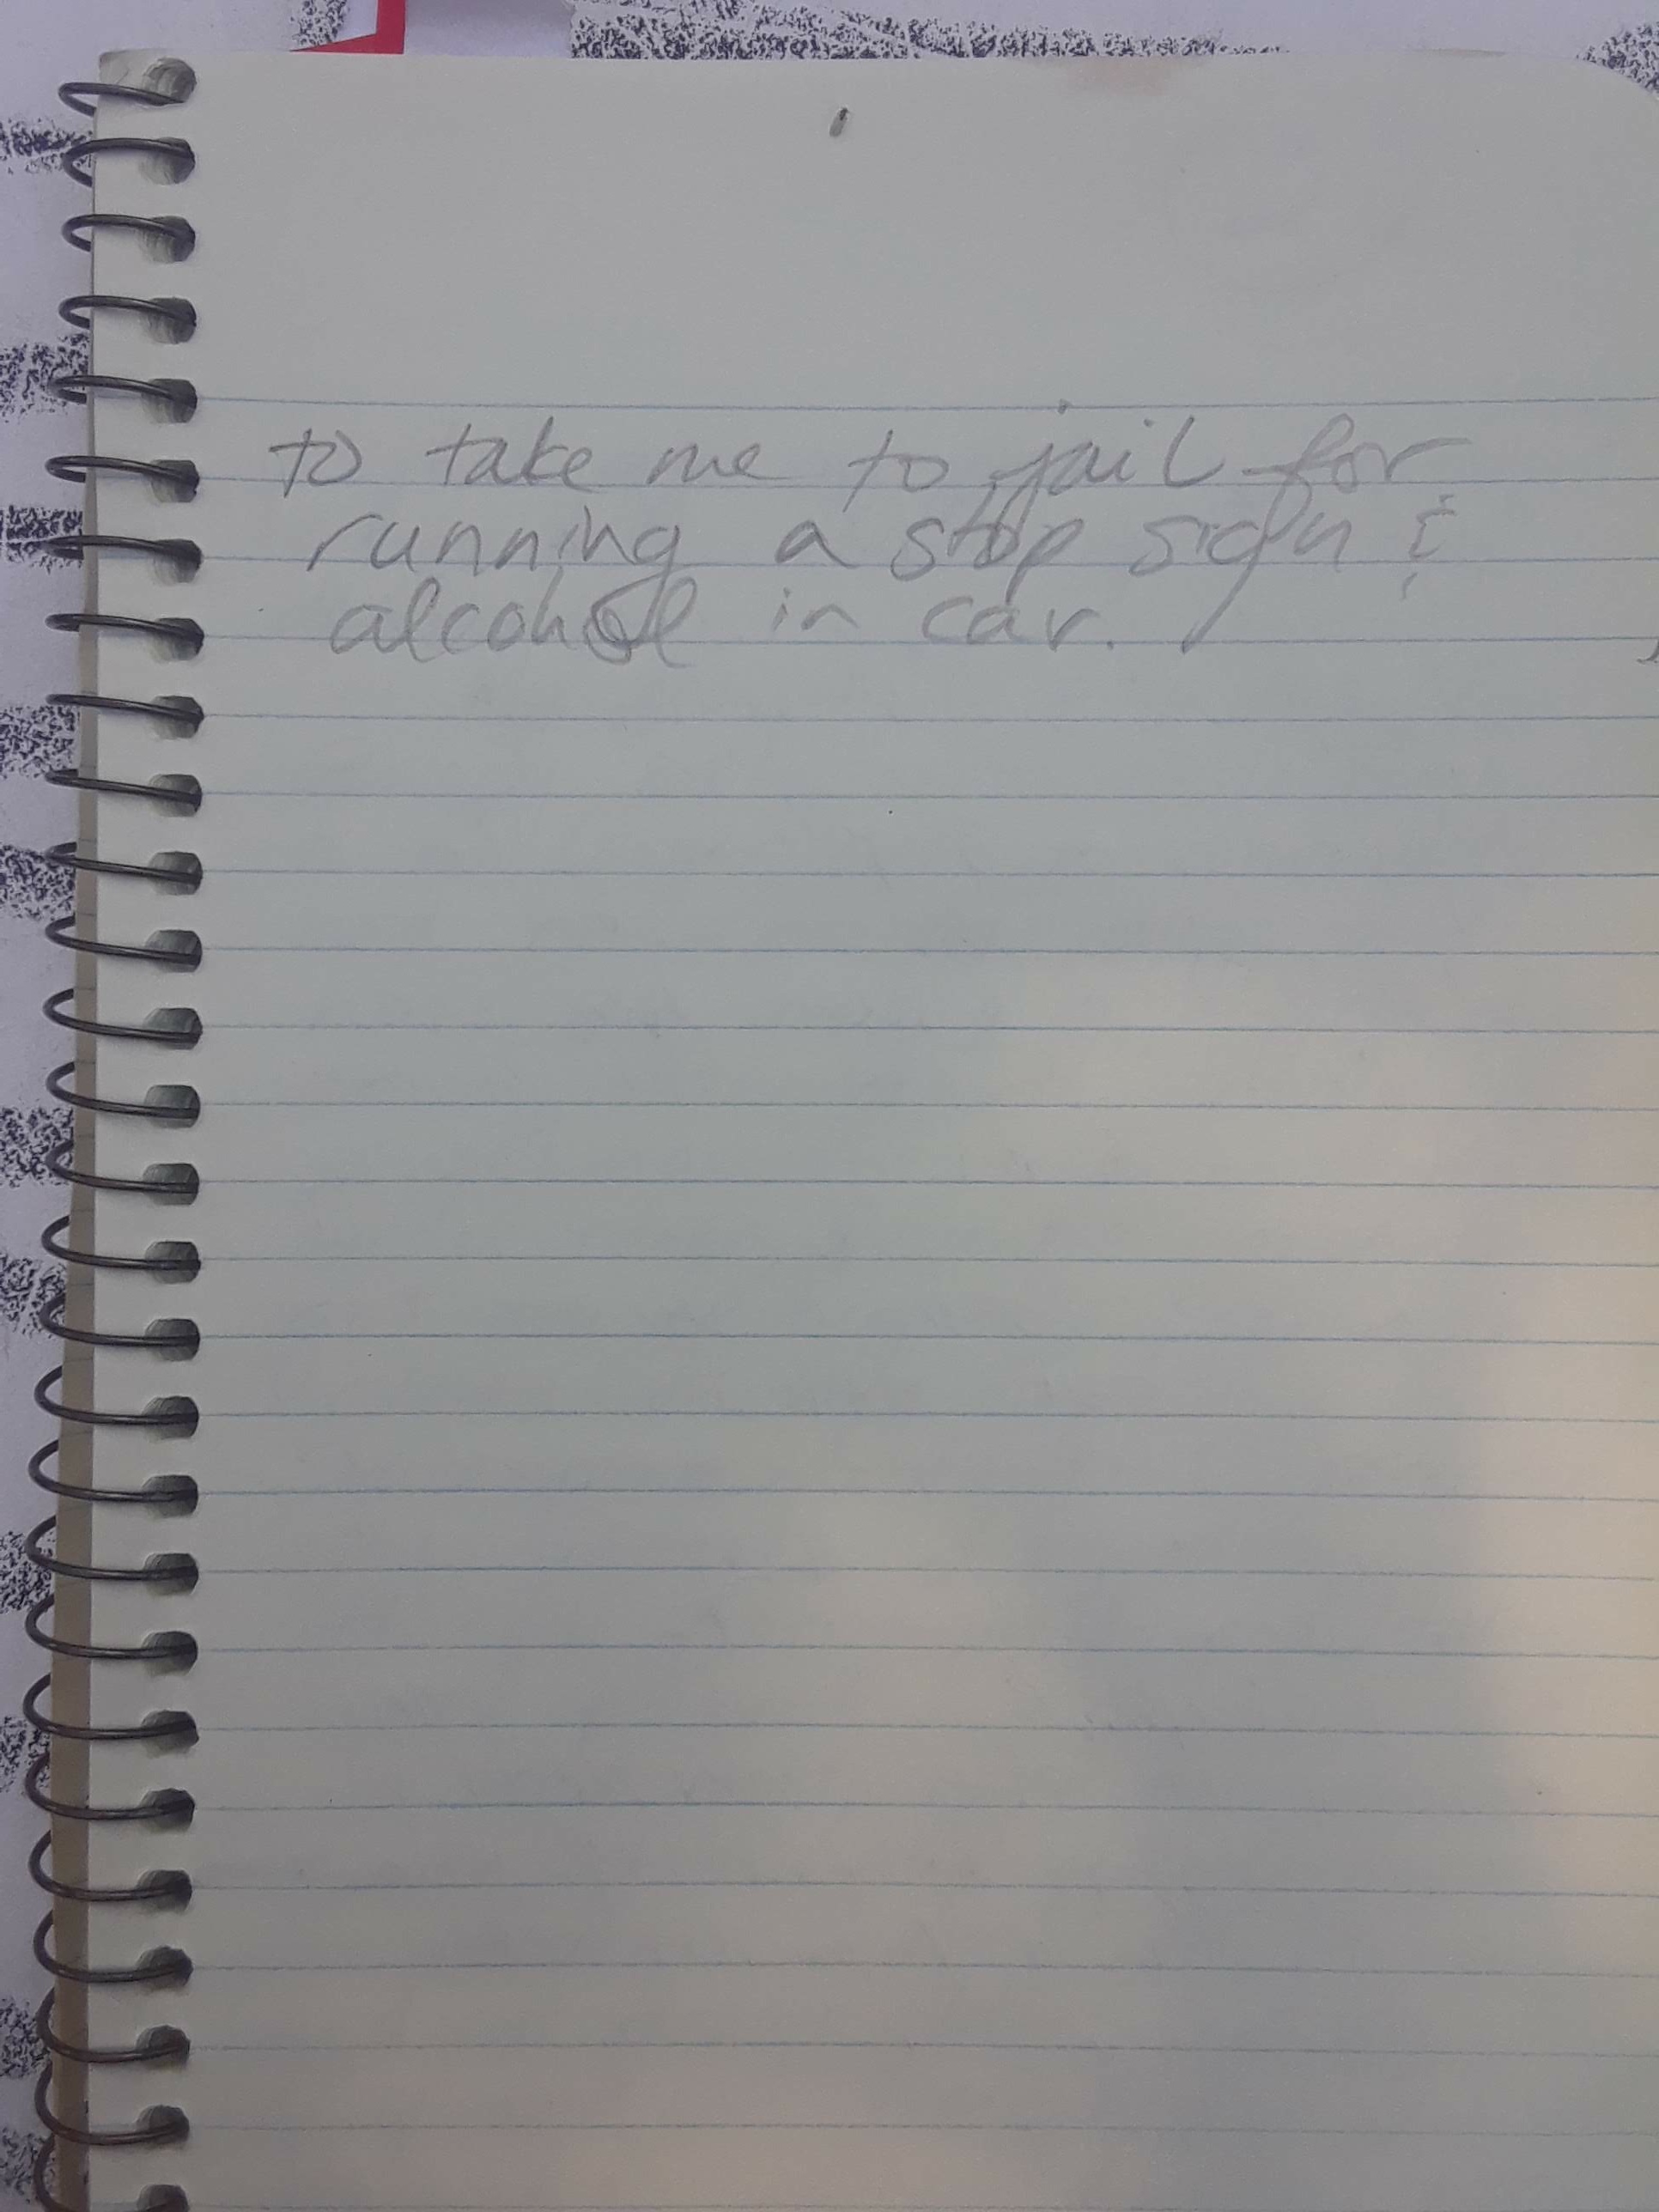 to take me to jail for
running a stop sign &
alcohol in car.